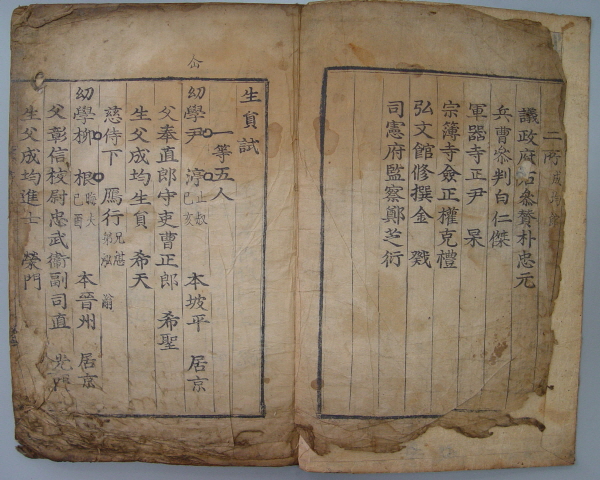 二所 成均館
議政府右叅賛朴忠元
兵曹叅判白仁傑
軍器寺正尹 杲
宗薄寺僉正權克禮
弘文館修撰金 戣
司憲府監察鄭芝衍
生員試
一等五人
幼學尹 渟 止叔 己亥 本坡平 居京
父奉直郎守吏曹正郎 希聖
生父成均生員 希天
慈侍下 鴈行 兄湛
幼學柳 根 晦夫 己酉 本晉州 居京
父彰信校尉忠武衛副司直
生父成均進士 榮門